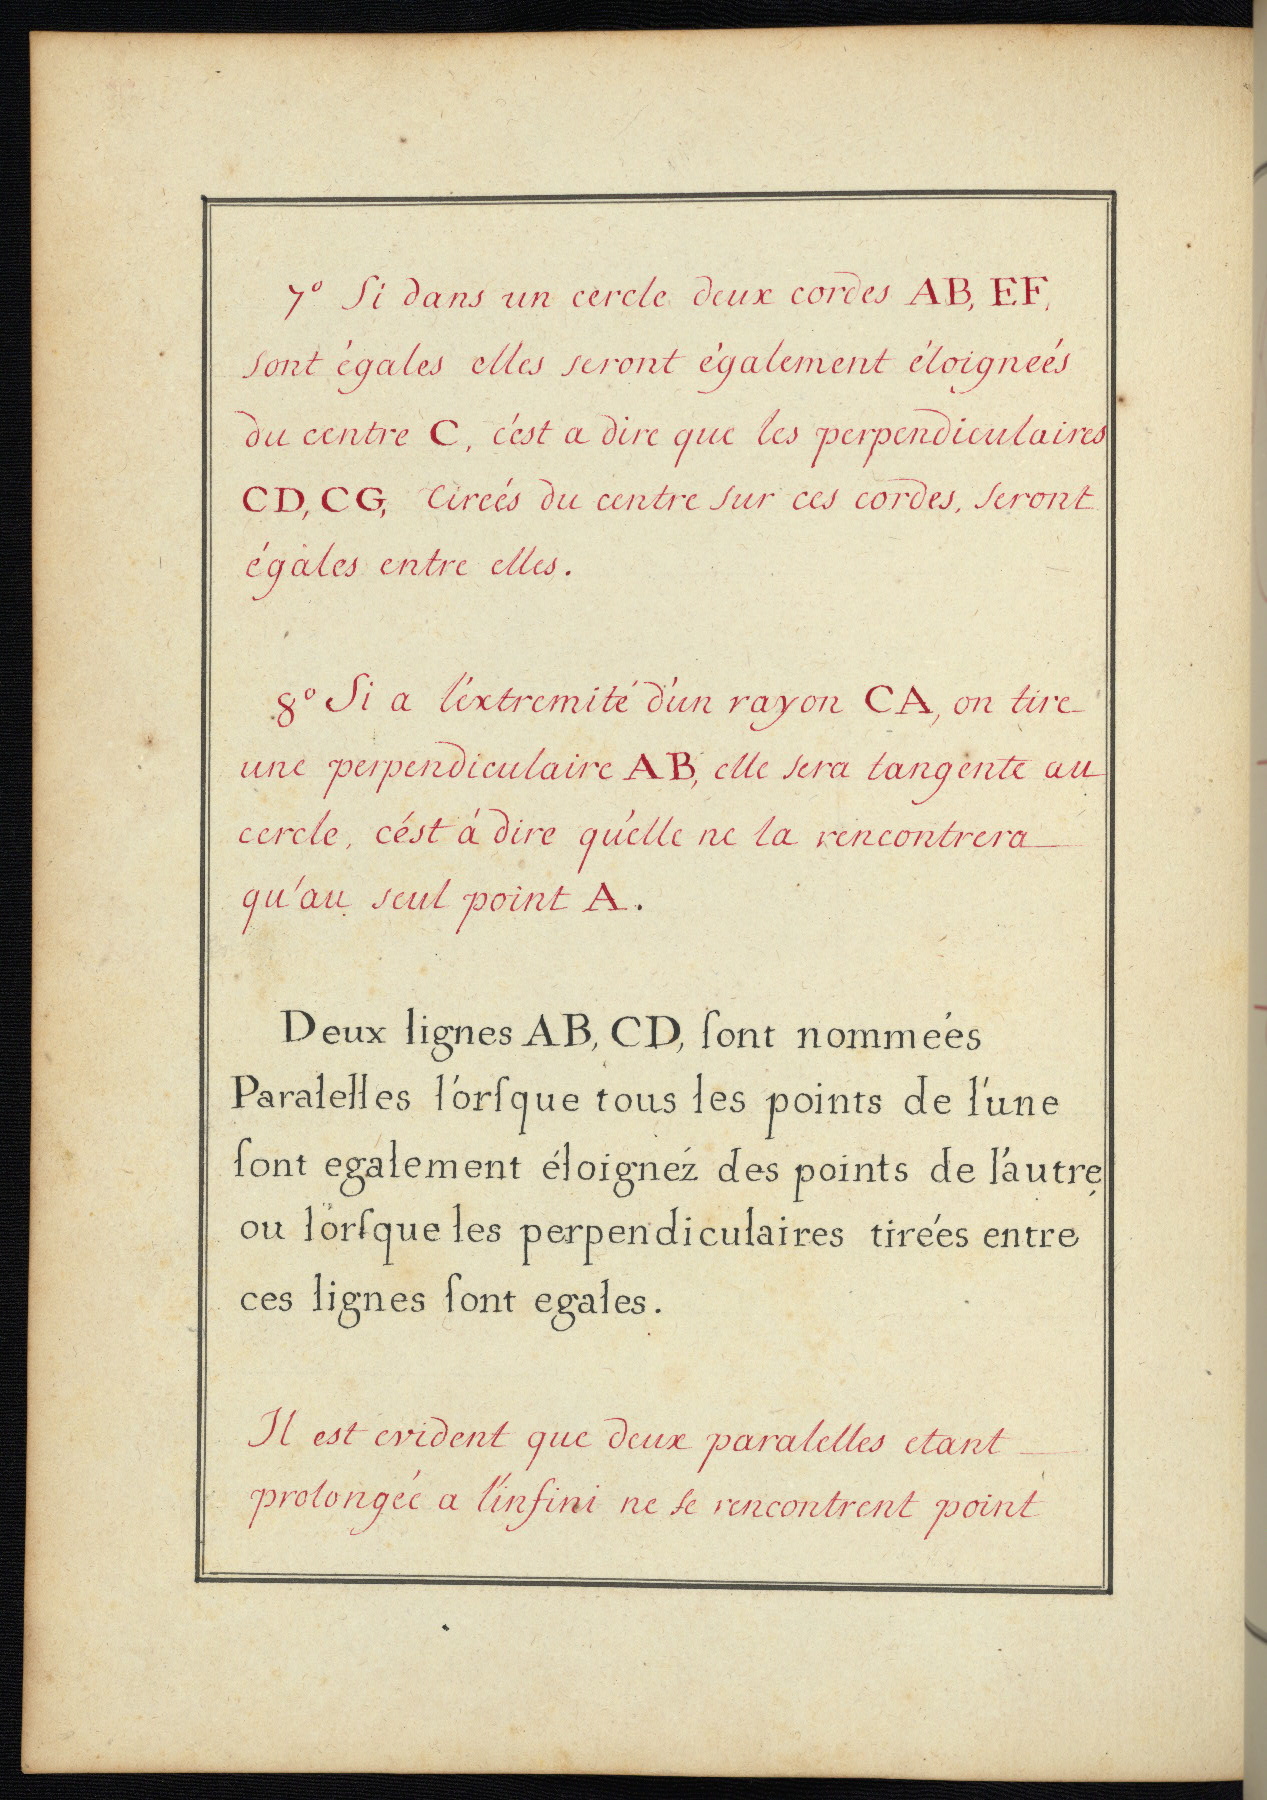 7º Si dans un cercle deux cordes AB, EF,
sont égales elles seront également éloigneés
du centre C, cést a dire que les perpendiculaires
CD, CG, tireés du centre sur ces cordes, seront
égales entre elles.
8º Si a l'éxtremité d'un rayon CA, on tire
une perpendiculaire AB, elle sera tangente au
cercle, cést á dire qu'elle ne la rencontrera
qu'au seul point A.
Deux lignes AB, CD, ſont nommeés
Paralelles l'orſque tous les points de l'une
ſont egalement éloignez des points de l'autre
ou lorſque les perpendiculaires tirées entre
ces lignes ſont egales.
Il est evident que deux paralelles etant
prolongée a l'infini ne se rencontrent point